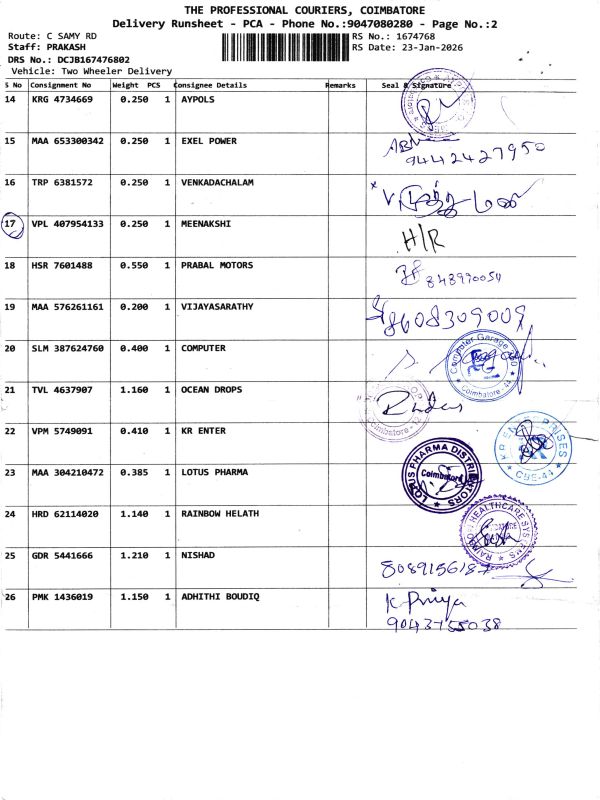 THE PROFESSIONAL COURIERS, COIMBATORE
Delivery Runsheet - PCA - Phone No.:9047080280 - Page No.:2
Route: C SAMY RD RS No.: 1674768
Staff: PRAKASH RS Date: 23-Jan-2026
DRS No.: DCJB167476802
Vehicle: Two Wheeler Delivery
S No Consignment No Weight PCS Consignee Details Remarks Seal & Signature
14 KRG 4734669 0.250 1 AYPOLS
15 MAA 653300342 0.250 1 EXEL POWER
9442427950
16 TRP 6381572 0.250 1 VENKADACHALAM
17 VPL 407954133 0.250 1 MEENAKSHI H/R
18 HSR 7601488 0.550 1 PRABAL MOTORS
19 MAA 576261161 0.200 1 VIJAYASARATHY 8608309009
20 SLM 387624760 0.400 1 COMPUTER
Computer Garage
Coimbatore - 44
21 TVL 4637907 1.160 1 OCEAN DROPS
Coimbatore - 12
22 VPM 5749091 0.410 1 KR ENTER
KR ENTERPRISES
CBE-44
23 MAA 304210472 0.385 1 LOTUS PHARMA
LOTUS PHARMA DISTRIBUTORS
Coimbatore
24 HRD 62114020 1.140 1 RAINBOW HELATH
RAINBOW HEALTHCARE SYSTEMS
25 GDR 5441666 1.210 1 NISHAD
8089156187
26 PMK 1436019 1.150 1 ADHITHI BOUDIQ
K. Priya
9043755038